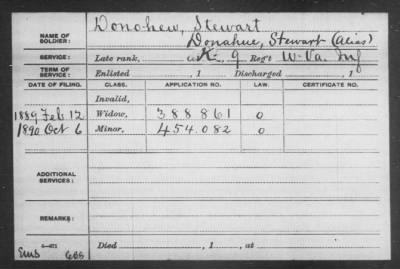 Donohew, Stewart
NAME OF SOLDIER: Donahue, Stewart (Alias)
SERVICE: Late rank, Co. K. 9 Reg't W. Va. Inf
TERM OF SERVICE: Enlisted , 1 Discharged , 1
DATE OF FILING. CLASS. APPLICATION NO. LAW. CERTIFICATE NO.
Invalid,
1889 Feb 12 Widow, 388861 0
1890 Oct 6 Minor, 454.082 0
ADDITIONAL SERVICES:
REMARKS:
Died , 1 , at